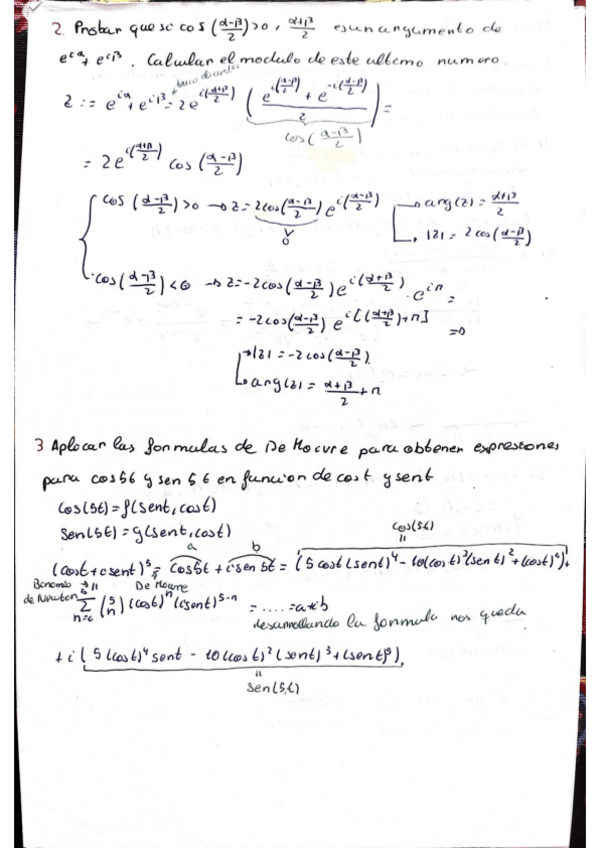 2. Probar que si cos (α-β/2)>0, α+β/2 es un argumento de
e^iα + e^iβ. Calcular el modulo de este ultimo numero.
z := e^iα + e^iβ = 2e^i(α+β/2) ( e^i(α-β/2) + e^-i(α-β/2) / 2 ) =
cos(α-β/2)
= 2e^i(α+β/2) cos(α-β/2)
cos(α-β/2)>0 → z = 2cos(α-β/2) e^i(α-β/2) → arg(z) = α+β/2
∨ 0 → |z| = 2cos(α-β/2)
cos(α-β/2)<0 → z = -2cos(α-β/2) e^i(α+β/2) · e^iπ =
= -2cos(α-β/2) e^i[(α+β/2)+π] ⇒
→ |z| = -2cos(α-β/2)
→ arg(z) = α+β/2 + π
3 Aplicar las formulas de De Moivre para obtener expresiones
para cos5t y sen5t en funcion de cost y sent
cos(5t) = f(sent, cost)
sen(5t) = g(sent, cost)
a b cos(5t)
(cost + isent)^5 = cos5t + i sen5t = (5cost(sent)^4 - 10(cost)^3(sent)^2 + (cost)^5) +
Binomio de Newton De Moivre
5 Σ n=0 (5 n) (cost)^n (isent)^5-n = ..... = a+ib
desarrollando la formula nos queda
+ i (5(cost)^4 sent - 10(cost)^2(sent)^3 + (sent)^5)
sen(5t)